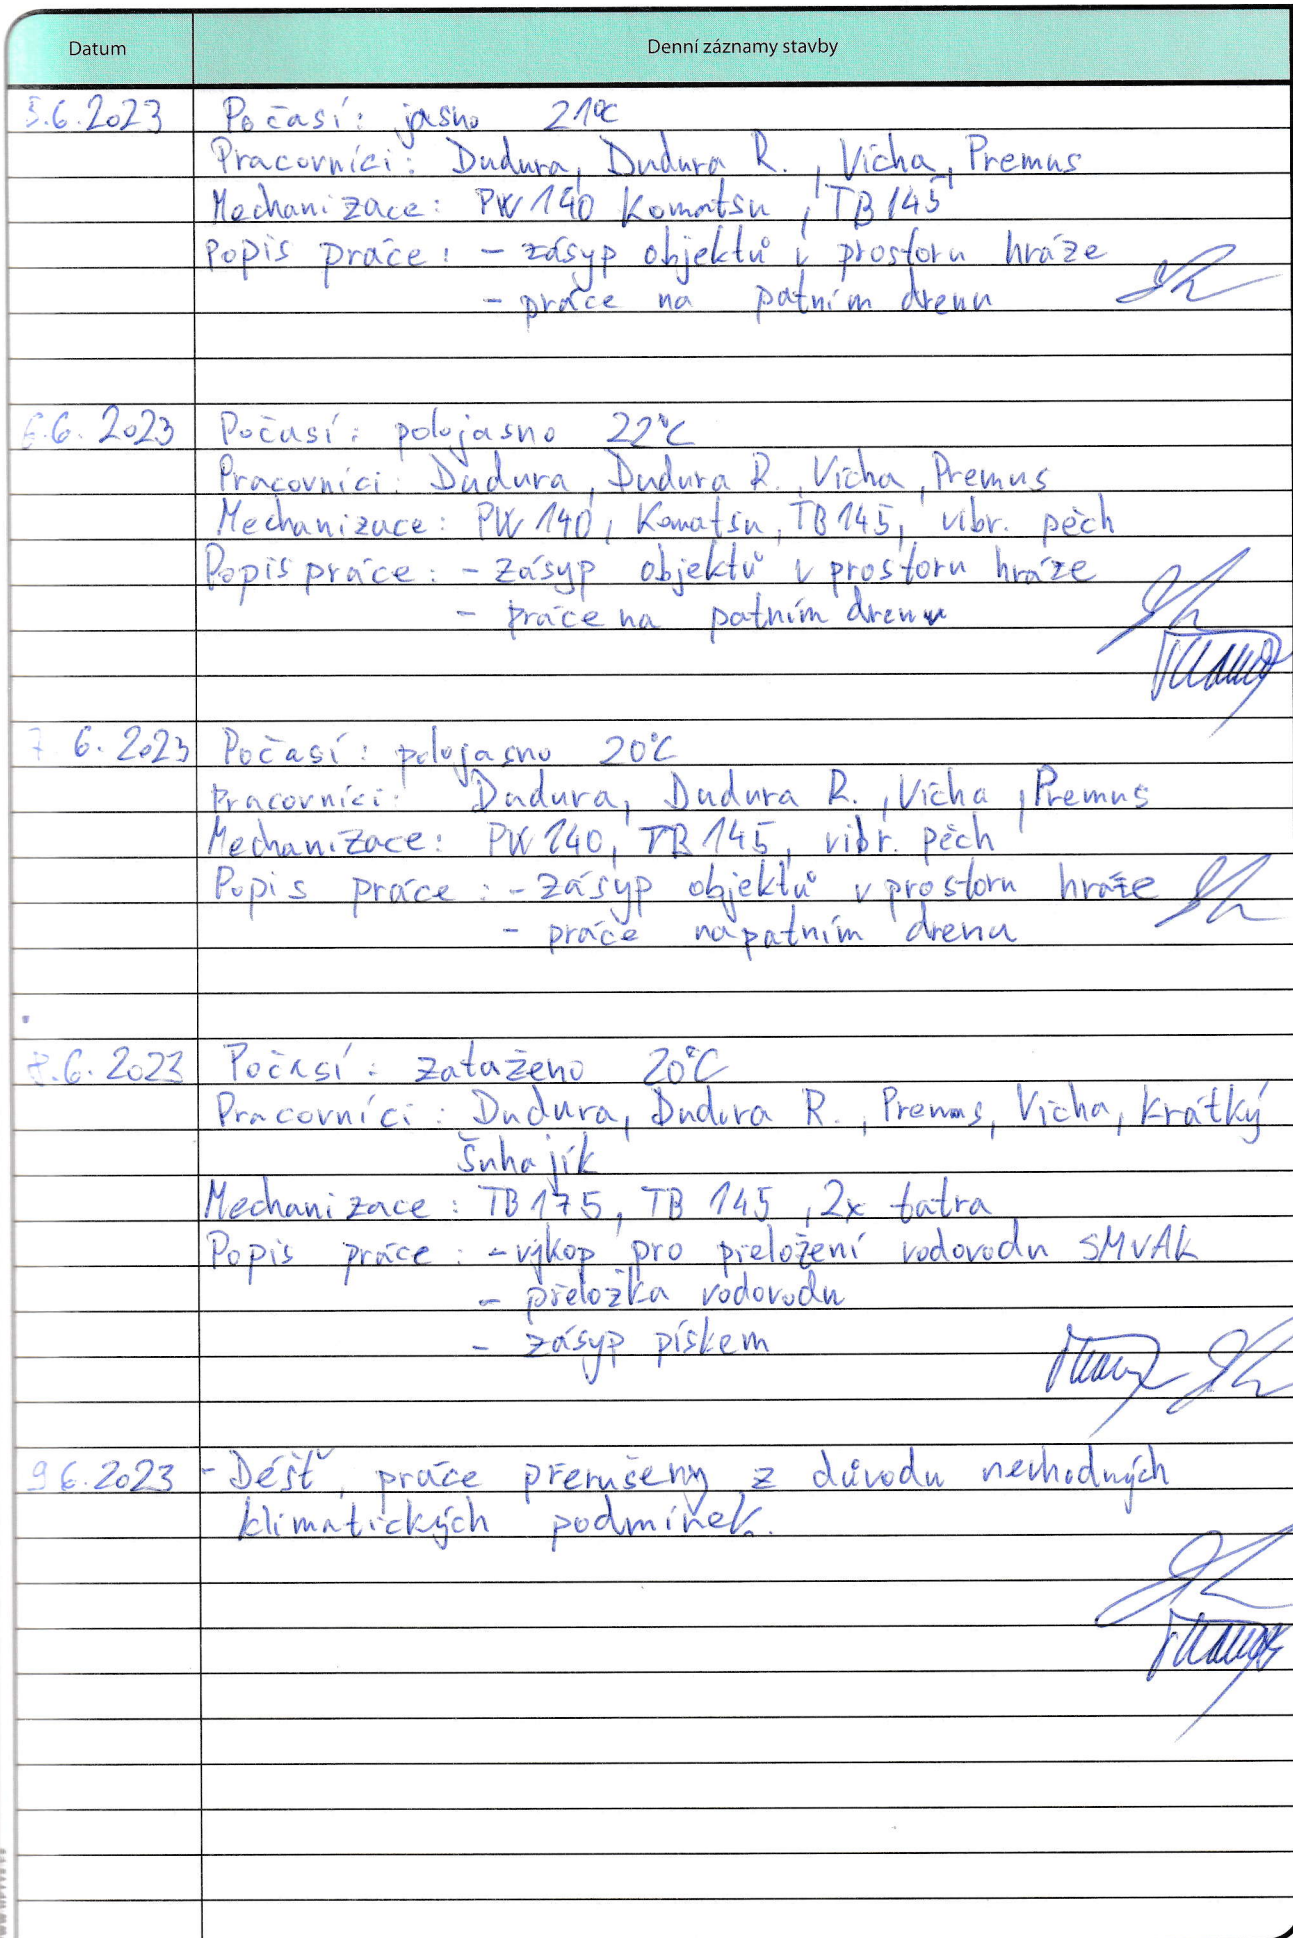 Datum Denní záznamy stavby
5.6.2023 Počasí: jasno 21°C
Pracovníci: Dudura, Dudura R., Vícha, Premus
Mechanizace: PW 140 Komatsu, TB 145
Popis práce: - zásyp objektů v prostoru hráze
- práce na patním drenu
6.6.2023 Počasí: polojasno 22°C
Pracovníci: Dudura, Dudura R., Vícha, Premus
Mechanizace: PW 140, Komatsu, TB 145, vibr. pěch
Popis práce: - zásyp objektů v prostoru hráze
- práce na patním drenu
7.6.2023 Počasí: polojasno 20°C
Pracovníci: Dudura, Dudura R., Vícha, Premus
Mechanizace: PW 140, TB 145, vibr. pěch
Popis práce: - zásyp objektů v prostoru hráze
- práce na patním drenu
8.6.2023 Počasí: zataženo 20°C
Pracovníci: Dudura, Dudura R., Premus, Vícha, Krátký
Šuhajík
Mechanizace: TB 175, TB 145, 2x tatra
Popis práce: - výkop pro přeložení vodovodu SMVAK
- přeložka vodovodu
- zásyp pískem
9.6.2023 - Déšť, práce přerušeny z důvodu nevhodných
klimatických podmínek.